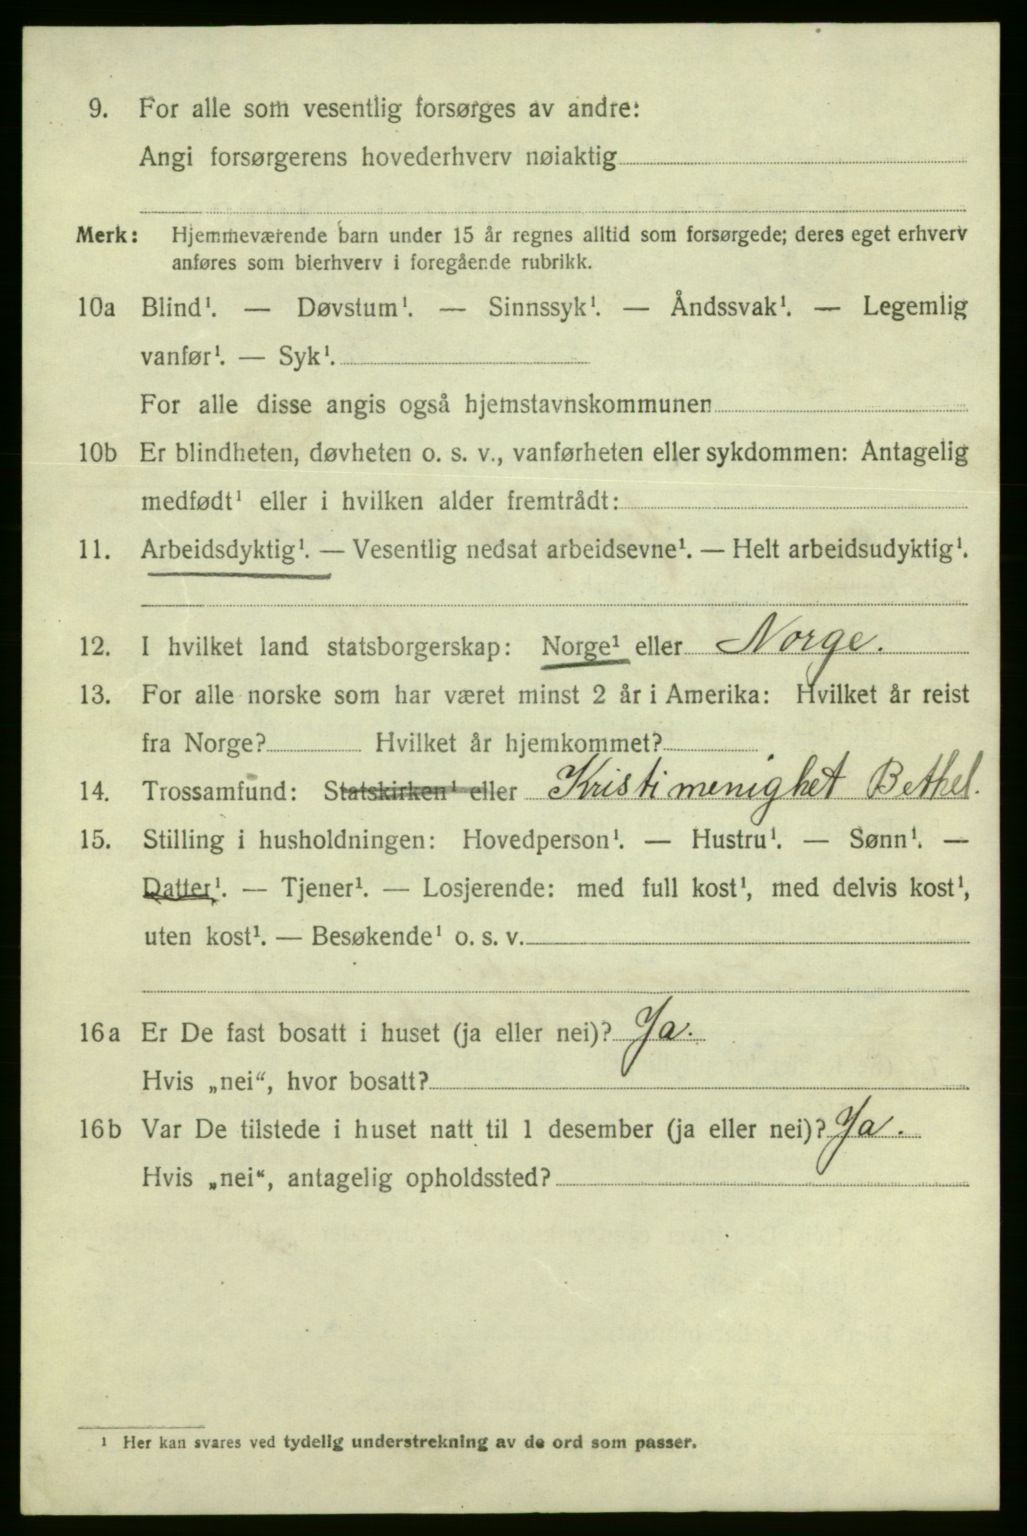 9. For alle som vesentlig forsørges av andre:
Angi forsørgerens hovederhverv nøiaktig
Merk: Hjemmeværende barn under 15 år regnes alltid som forsørgede; deres eget erhverv
anføres som bierhverv i foregående rubrikk.
10a Blind¹. — Døvstum¹. — Sinnssyk¹. — Åndssvak¹. — Legemlig
vanfør¹. — Syk¹.
For alle disse angis også hjemstavnskommunen
10b Er blindheten, døvheten o. s. v., vanførheten eller sykdommen: Antagelig
medfødt¹ eller i hvilken alder fremtrådt:
11. Arbeidsdyktig¹. — Vesentlig nedsat arbeidsevne¹. — Helt arbeidsudyktig¹.
12. I hvilket land statsborgerskap: Norge¹ eller Norge.
13. For alle norske som har været minst 2 år i Amerika: Hvilket år reist
fra Norge? Hvilket år hjemkommet?
14. Trossamfund: Statskirken¹ eller Kristi menighet Bethel.
15. Stilling i husholdningen: Hovedperson¹. — Hustru¹. — Sønn¹. —
Datter¹. — Tjener¹. — Losjerende: med full kost¹, med delvis kost¹,
uten kost¹. — Besøkende¹ o. s. v.
16a Er De fast bosatt i huset (ja eller nei)? Ja.
Hvis „nei“, hvor bosatt?
16b Var De tilstede i huset natt til 1 desember (ja eller nei)? Ja.
Hvis „nei“, antagelig opholdssted?
¹ Her kan svares ved tydelig understrekning av de ord som passer.